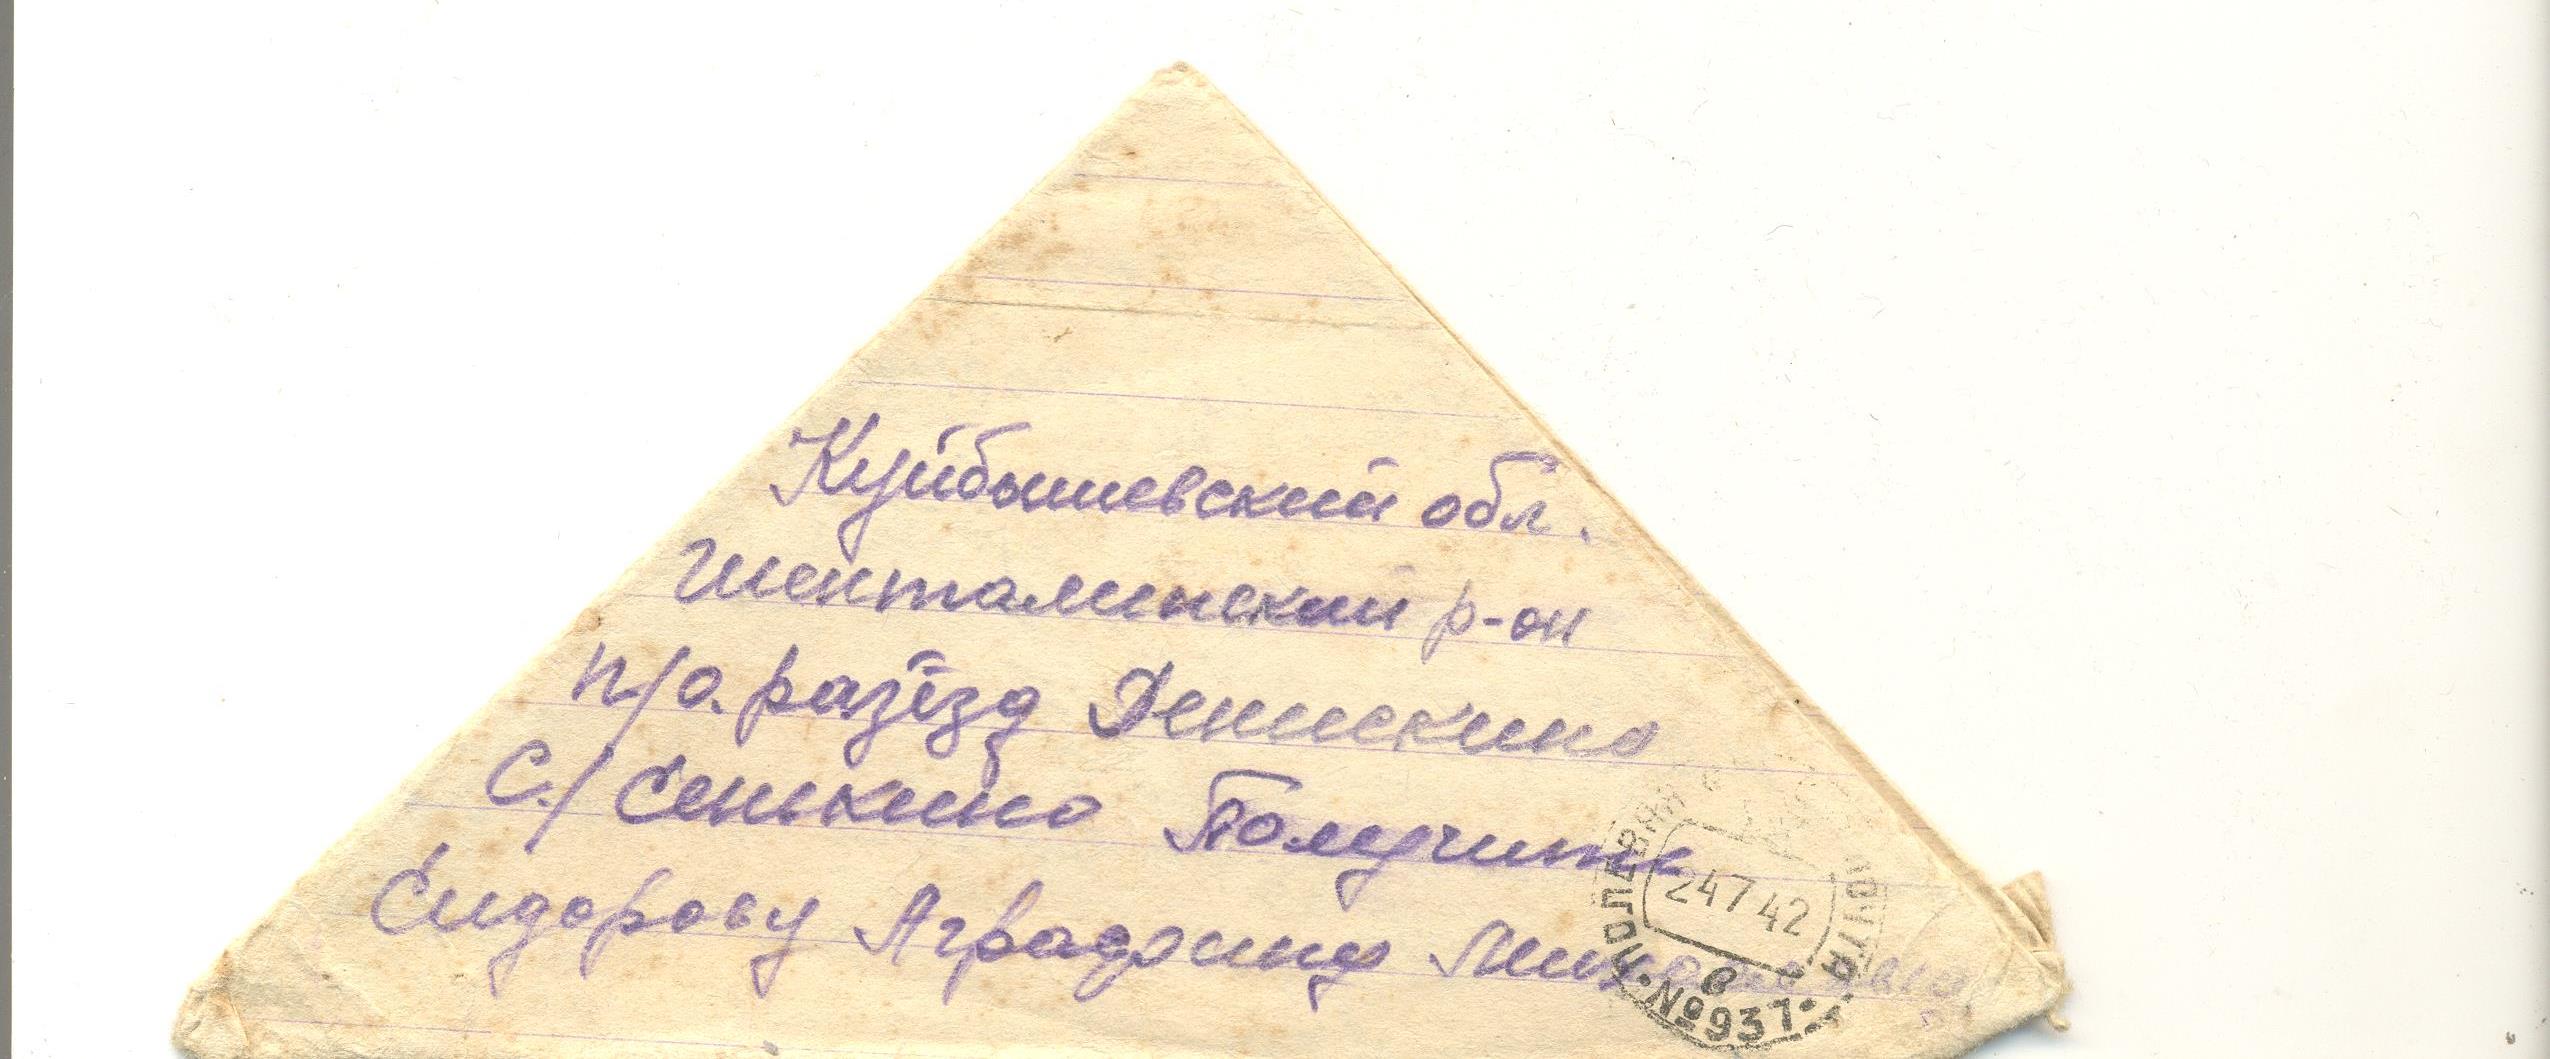 Куйбышевский обл.
Шенталинский р-он
п/о. разъезд Денискино
С./ Сенькино Получить
Сидорову
ПОЛЕВАЯ
24 7 42
в
№931